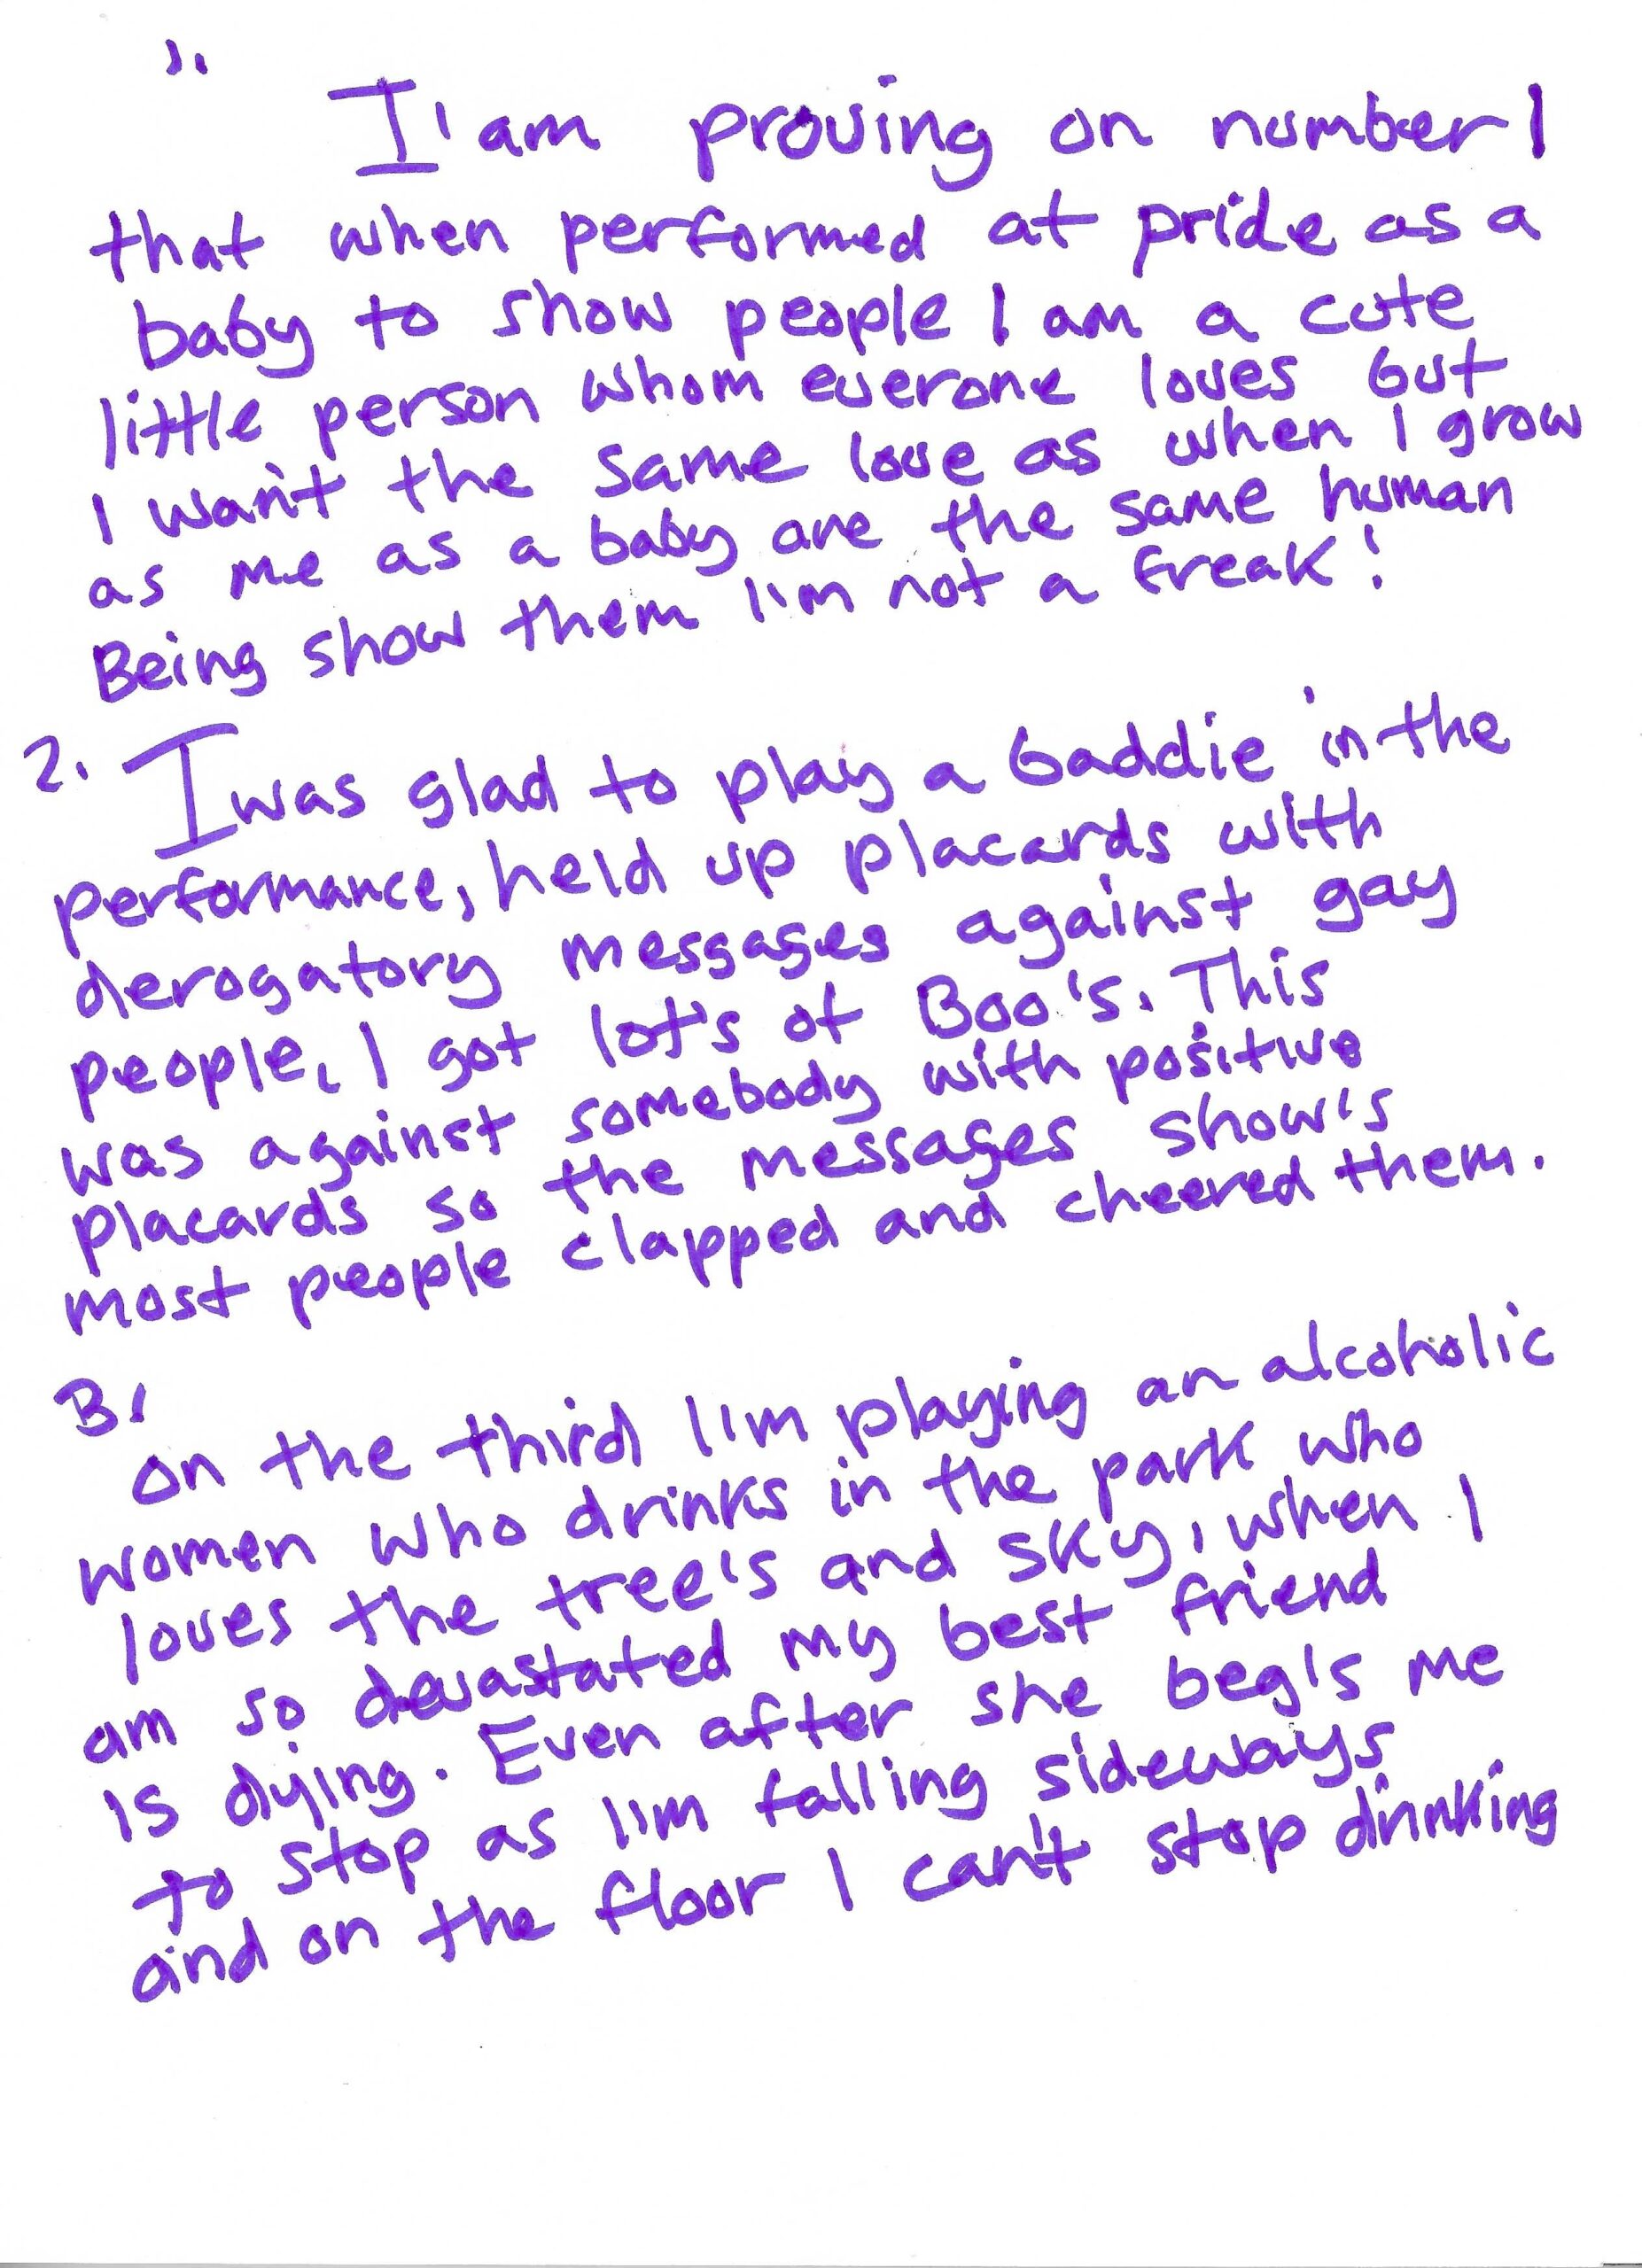 1.
I'am proving on number 1
that when performed at pride as a
baby to show people I am a cute
little person whom everone loves but
I wan't the same love as when I grow
as me as a baby are the same human
Being show them I'm not a freak!
2. I was glad to play a baddie in the
performance, held up placards with
derogatory messages against gay
people, I got lot's of Boo's. This
was against somebody with positive
placards so the messages show's
most people clapped and cheered them.
3.
on the third I'm playing an alcoholic
women who drinks in the park who
loves the tree's and sky, when I
am so devastated my best friend
is dying. Even after she beg's me
to stop as I'm falling sideways
and on the floor I can't stop drinking